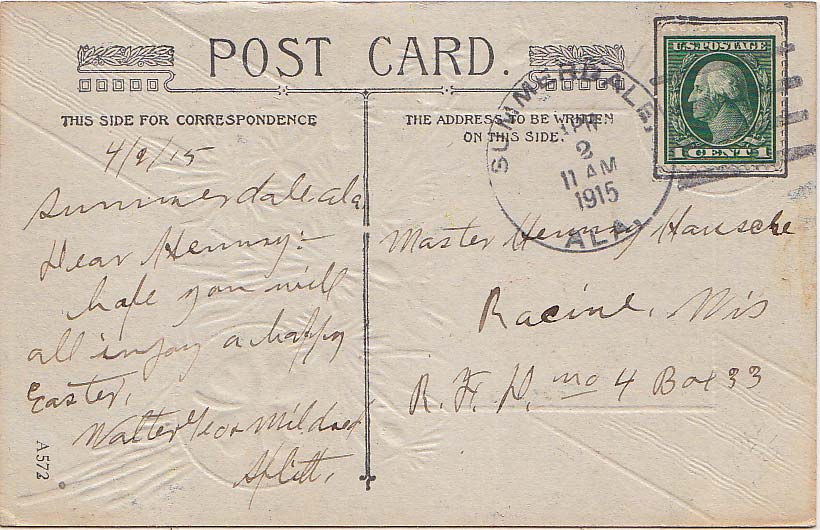 POST CARD.
THIS SIDE FOR CORRESPONDENCE
THE ADDRESS TO BE WRITTEN
ON THIS SIDE.
U.S. POSTAGE
1 CENT 1
SUMMERDALE,
APR
2
11 AM
1915
ALA.
4/2/15
Summerdale, Ala
Dear Henry:-
hope you will
all injoy a happy
Easter,
Walter Mildred
Splitt,
A572
Master Henry Hansche
Racine, Wis
R. F. D. no 4 Box 33